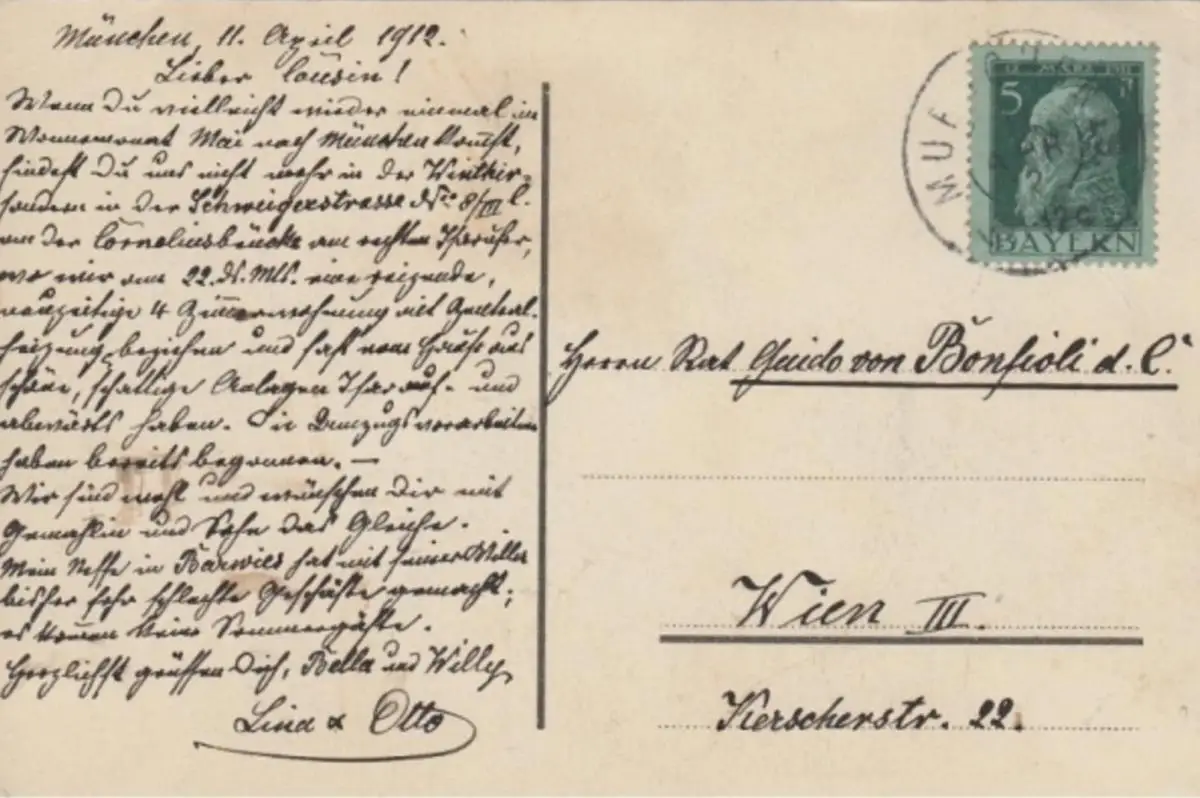 München, 11. April 1912.
Lieber Cousin!
Wenn Du vielleicht wieder einmal im
Wonnemonat Mai nach München kommst,
findest Du uns nicht mehr in der Winthir-
sondern in der Schweigerstrasse No 8/III l.
an der Corneliusbrücke am rechten Isarufer,
wo wir am 22. ds. Mts. eine reizende,
neuzeitige 4 Zimmerwohnung mit Zentral-
heizung beziehen und fast vom Hause aus
schöne, schattige Anlagen Isarauf- und
abwärts haben. Die Umzugsvorarbeiten
haben bereits begonnen. —
Wir sind wohl und wünschen Dir mit
Gemahlin und Sohn das Gleiche.
Mein Neffe in Barwies hat mit seiner Villa
bisher sehr schlechte Geschäfte gemacht;
es kommen keine Sommergäste.
Herzlichst grüssen Dich, Bella und Willy
Lina & Otto
5
BAYERN
Herrn Rat Guido von Bonfioli d. C.
Wien III.
Kerscherstr. 22.